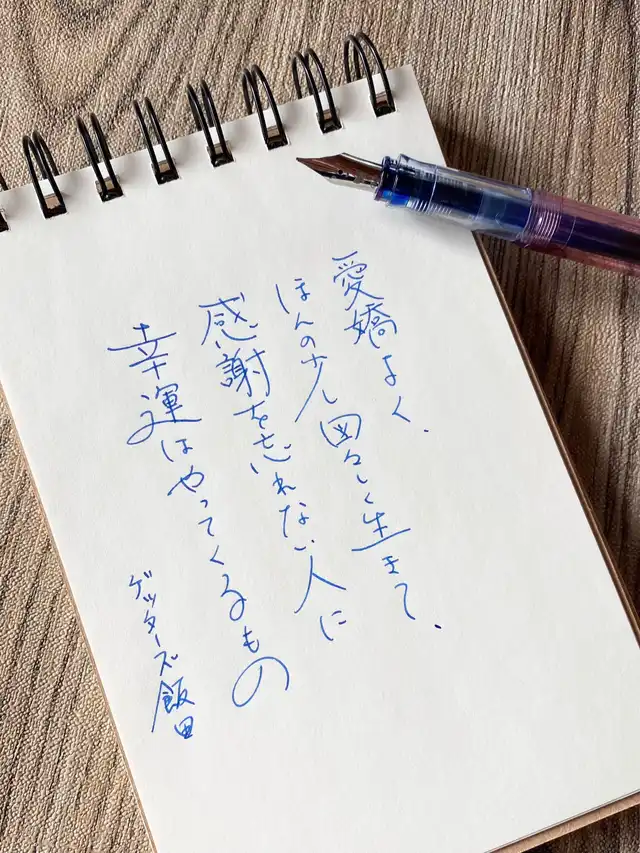 愛嬌よく、
ほんの少し図々しく生きて、
感謝を忘れない人に
幸運はやってくるもの
ゲッターズ飯田